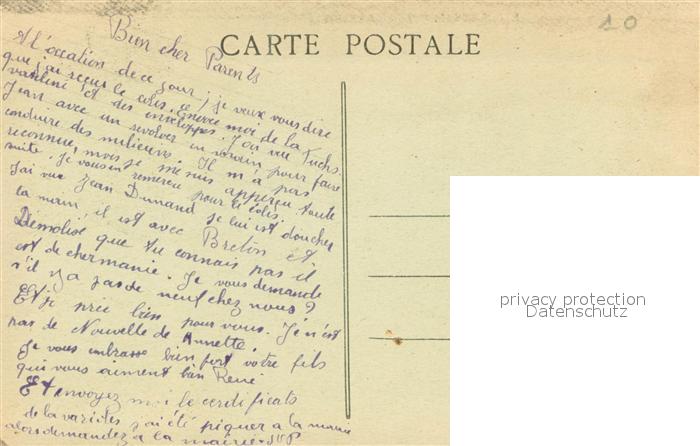 10
CARTE POSTALE
Bien cher Parents
A l'occation de ce jour, je veux vous dire
que j'ai reçue le colis, envoie moi de la
vaseline et des enveloppes. J'ai vue Fuchs
Jean avec un revolver en vorain pour faire
conduire des miliciens. Il m'a pas
reconnue, mais je me suis apperçu toute
suite. Je vous en remercie pour le colis.
J'ai vue Jean Dunand je lui est doucher
la main il est avec Breton et
Demolise que tu connais pas il
est de chermanie. Je vous demande
s'il y a pas de neuf chez nous ?
Et je prie bien pour vous. J'e n'est
pas de Nouvelle de Annette.
Je vous embrasse bien fort votre fils
qui vous aiment bien René
Et envoyez moi le certificats
de la varioles j'ai été piquer a la mairie
alors demandez a la mairie. S.V.P
privacy protection
Datenschutz